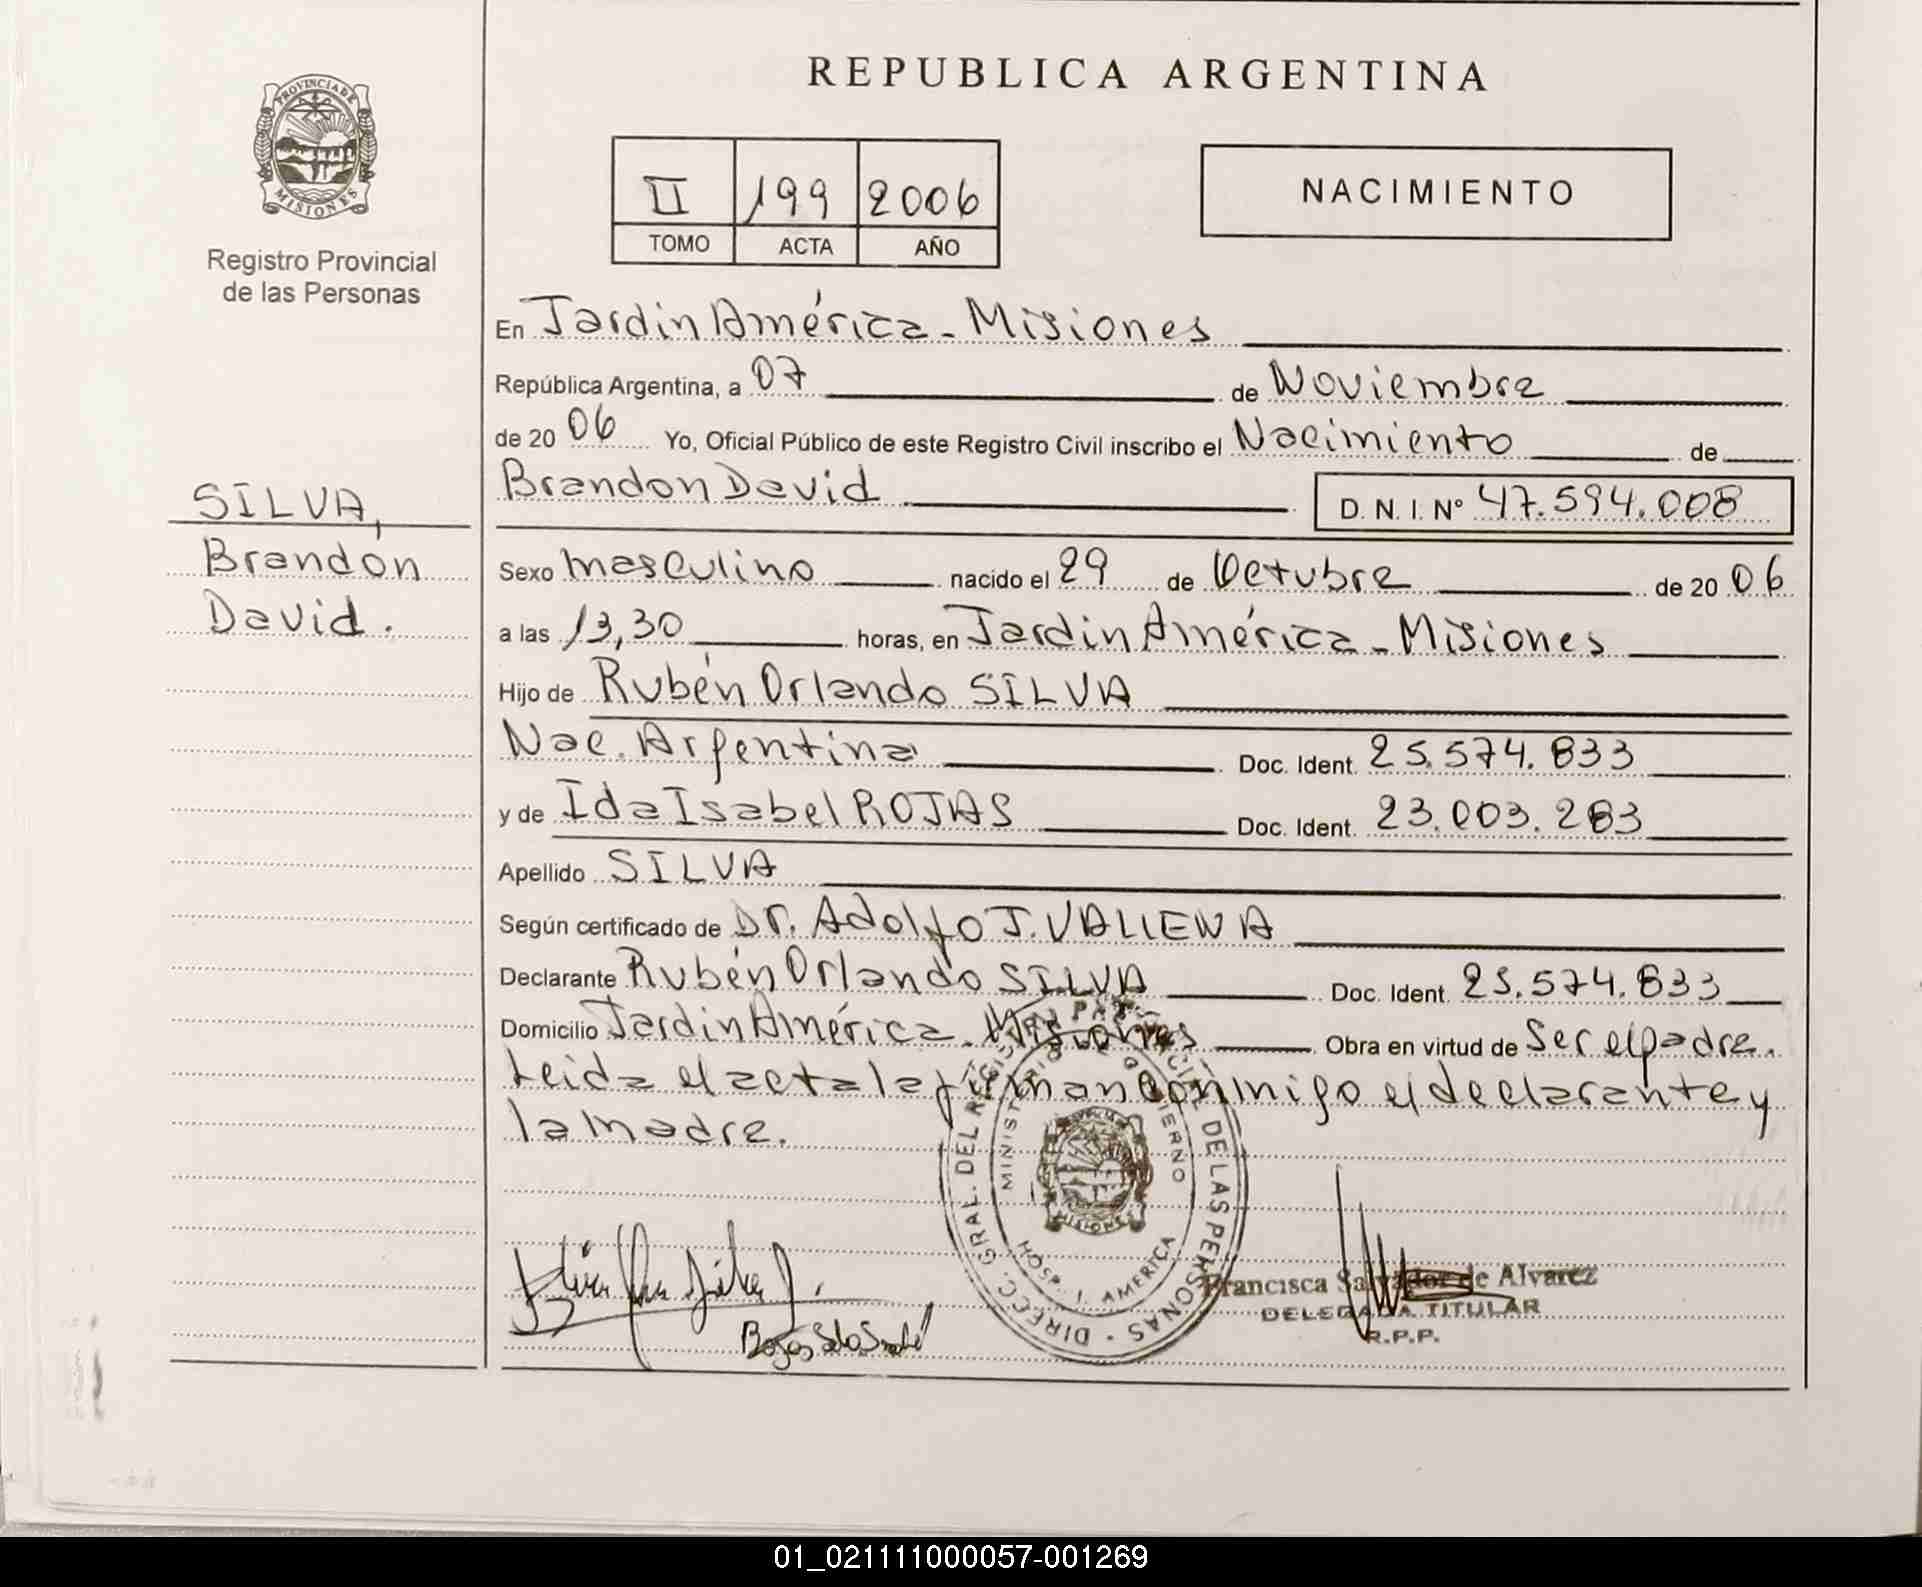 REPUBLICA ARGENTINA
PROVINCIA DE
MISIONES
Registro Provincial
de las Personas
II 199 2006
TOMO ACTA AÑO
NACIMIENTO
En Jardin América - Misiones
República Argentina, a 07 de Noviembre
de 20 06 Yo, Oficial Público de este Registro Civil inscribo el Nacimiento de
Brandon David D. N. I. Nº 47.594.008
SILVA,
Brandon
David.
Sexo masculino nacido el 29 de Octubre de 20 06
a las 13,30 horas, en Jardin América - Misiones
Hijo de Rubén Orlando SILVA
Nac. Argentina Doc. Ident. 25.574.833
y de Ida Isabel ROJAS Doc. Ident. 23.003.283
Apellido SILVA
Según certificado de Dr. Adolfo J. VALIENA
Declarante Rubén Orlando SILVA Doc. Ident. 25.574.833
Domicilio Jardin América - Misiones Obra en virtud de Ser el padre.
Leida el acta la firman conmigo el declarante y
la madre.
DIREC. GRAL. DEL REGISTRO PROVINCIAL DE LAS PERSONAS
MINISTERIO DE GOBIERNO
MISIONES
HOSP. J. AMERICA
Francisca Salvador de Alvarez
DELEGADA TITULAR
R.P.P.
01_021111000057-001269